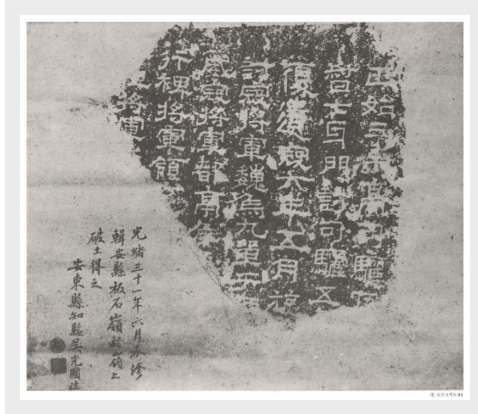 正始三年高句驪
督七牙門討句驪五
復遣寇六年五月旋
討寇將軍魏烏丸單于
威寇將軍都亭侯
行裨將軍領
將軍
光緒三十一年六月修
輯安縣板石嶺於嶺上
破土得之
安東縣知縣吳光國